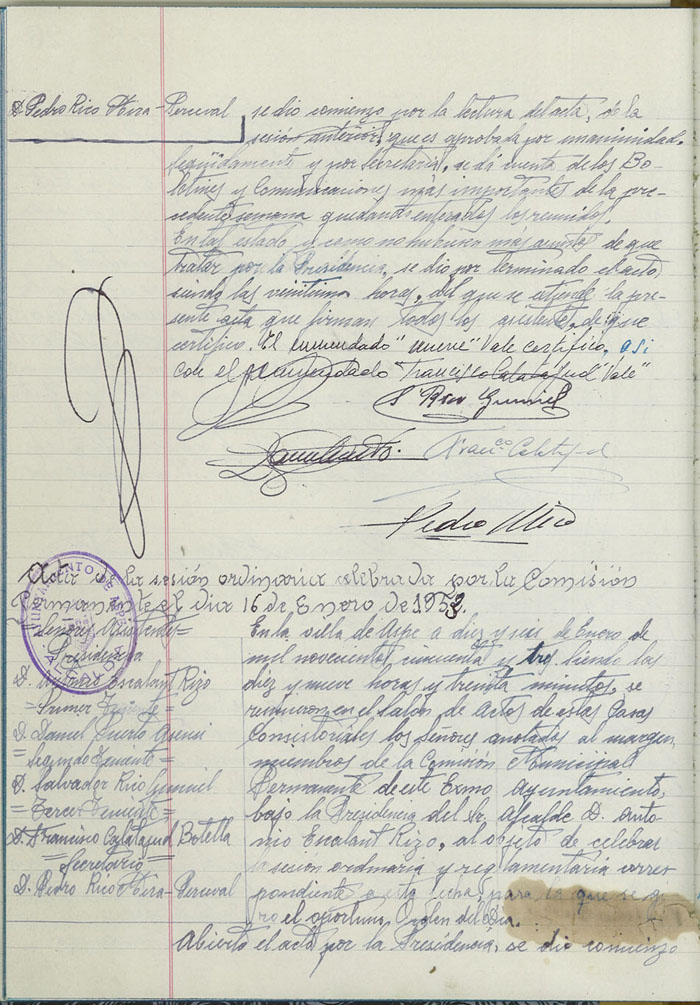 D. Pedro Rico Mira-Perceval
se dio comienzo por la lectura del acta, de la
sesión anterior, que es aprobada por unanimidad.
Seguidamente y por Secretaría, se dá cuenta de los Bo-
letines y Comunicaciones más importantes de la pre-
cedente semana quedando enterados los reunidos.
En tal estado y como no hubiera más asuntos de que
tratar por la Presidencia, se dio por terminado el acto
siendo las veintiuna horas, del que se extiende la pre-
sente acta que firman todos los asistentes, de que
certifico. El enmendado "nueve" Vale certifico, asi
con el enmendado "Francisco Calatayud" Vale"
S Rico Gumiel
Daniel Puerto. Franco Calatayud
Pedro Rico
Acta de la sesión ordinaria celebrada por la Comisión
Permanente el dia 16 de Enero de 1953.
AYUNTAMIENTO DE ASPE
Señores Asistentes=
Presidencia
D. Antonio Escalant Rizo
=Primer Teniente=
D. Daniel Puerto Asensi
=Segundo Teniente=
D. Salvador Rico Gumiel
=Tercer Teniente=
D. Francisco Calatayud Botella
=Secretario=
D. Pedro Rico Mira-Perceval
En la villa de Aspe a diez y seis de Enero de
mil novecientos cincuenta y tres. Siendo las
diez y nueve horas y treinta minutos, se
reunieron en el Salón de Actos de estas Casas
Consistoriales los señores anotados al margen,
miembros de la Comisión Municipal
Permanente de este Exmo Ayuntamiento,
bajo la Presidencia del Sr. Alcalde D. Anto-
nio Escalant Rizo, al objeto de celebrar
la sesion ordinaria y reglamentaria corres
pondiente a esta fecha, para la que se gi-
ró el oportuno Orden del Dia.
Abierto el acto por la Presidencia, se dio comienzo